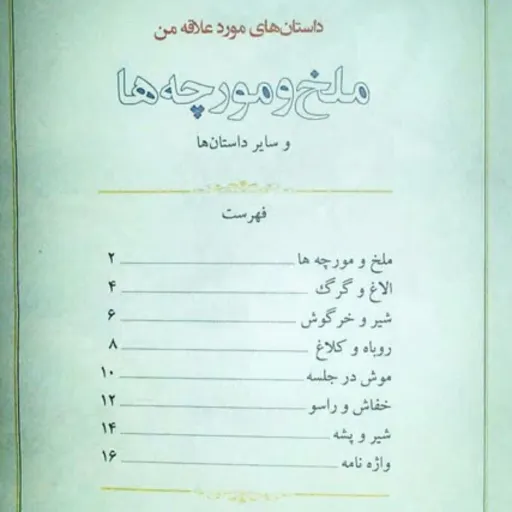 داستان‌های مورد علاقه من
ملخ و مورچه‌ها
و سایر داستان‌ها
فهرست
ملخ و مورچه ها ۲
الاغ و گرگ ۴
شیر و خرگوش ۶
روباه و کلاغ ۸
موش در جلسه ۱۰
خفاش و راسو ۱۲
شیر و پشه ۱۴
واژه نامه ۱۶